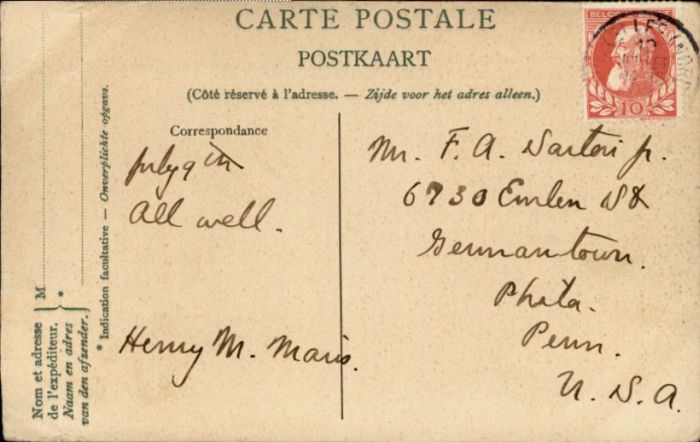 CARTE POSTALE
POSTKAART
(Côté réservé à l'adresse. — Zijde voor het adres alleen.)
Correspondance
July 9th
All well.
Henry M. Maris.
Mr. F. A. Sartori Jr.
6730 Emlen St
Germantown.
Phila.
Penn.
U. S. A.
* Indication facultative — Onverplichte opgave.
M
*
Nom et adresse
de l'expéditeur.
Naam en adres
van den afzender.
10